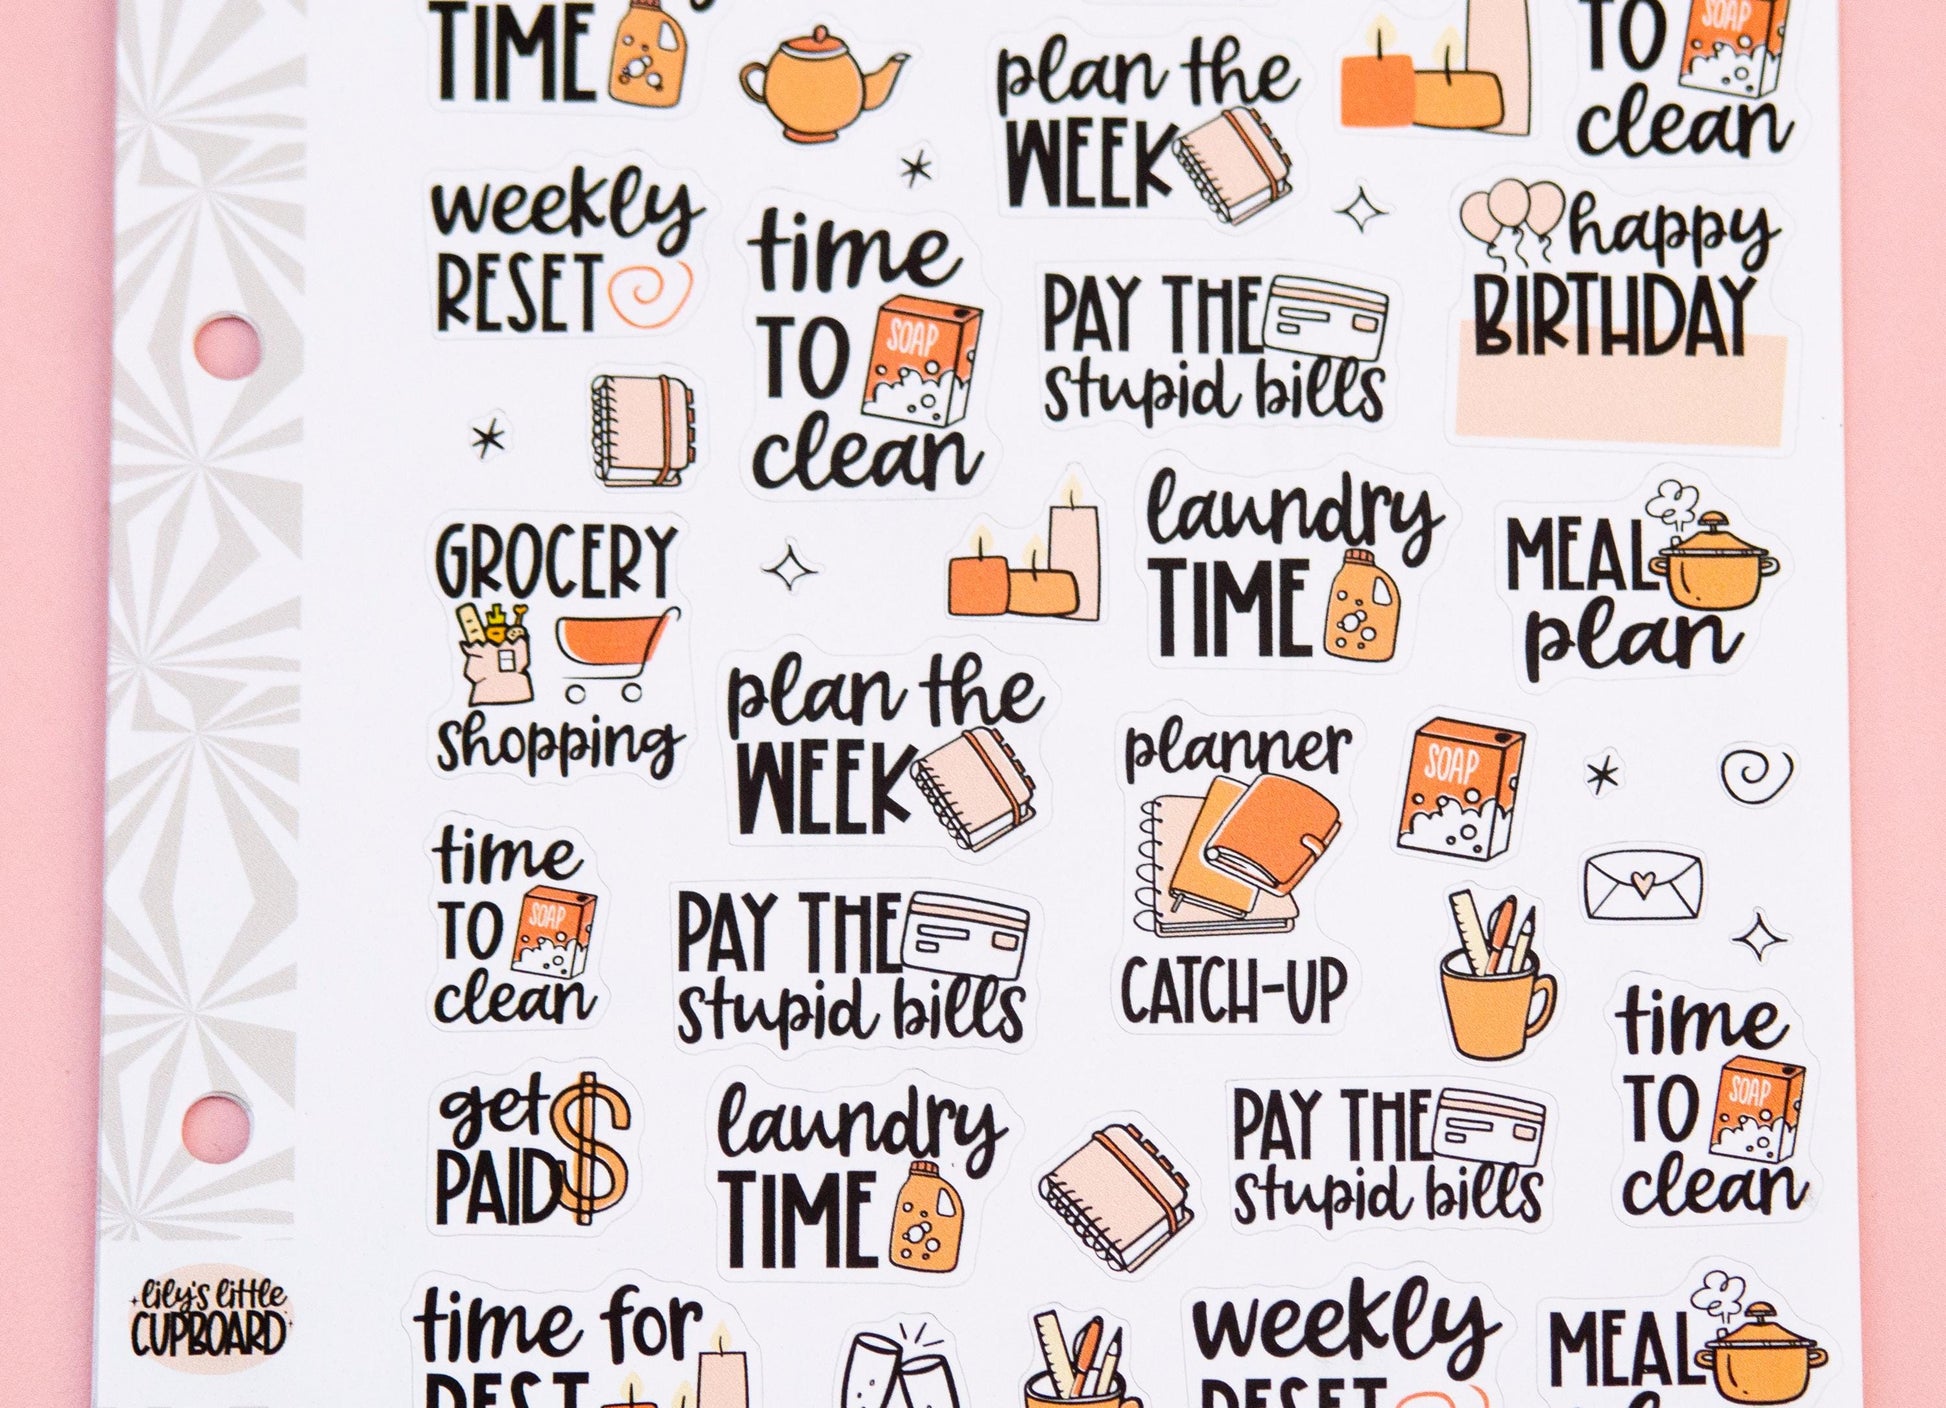 TIME
plan the
WEEK
TO
SOAP
clean
weekly
RESET
time
TO
SOAP
clean
PAY THE
stupid bills
happy
BIRTHDAY
GROCERY
shopping
laundry
TIME
MEAL
plan
plan the
WEEK
planner
CATCH-UP
SOAP
time
TO
SOAP
clean
PAY THE
stupid bills
get
PAID
$
laundry
TIME
PAY THE
stupid bills
time
TO
SOAP
clean
lily's little
CUPBOARD
time for
REST
weekly
RESET
MEAL